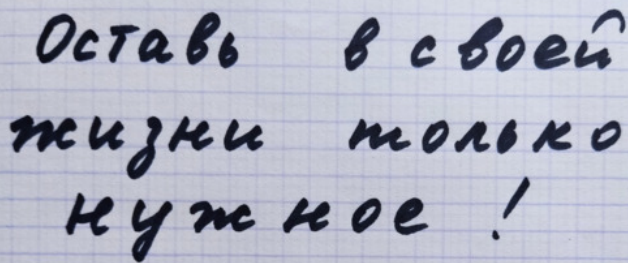 Оставь в своей
жизни только
нужное !